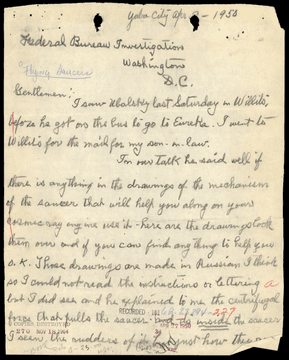 Yuba City Apr 2 - 1950
Federal Bureau Investigation
Washington
D.C.
"Flying Saucers"
Gentlemen:
I saw last Saturday in Willits,
before he got on the bus to go to Eureka. I went to
Willits for the maid for my son-in-law.
In our talk he said well if
there is anything in the drawings of the mechanism
of the saucer that will help you along on your
cosmic ray engine use it - here are the drawings look
them over and if you can find anything to help you
O.K. Those drawings are made in Russian I think
so I could not read the instructions or lettering
but I did see and he explained to me the centrifugal
force that pulls the saucer inside the saucer
I seen the rudders just how the
RECORDED
COPIES DESTROYED
270 NOV 18 1964